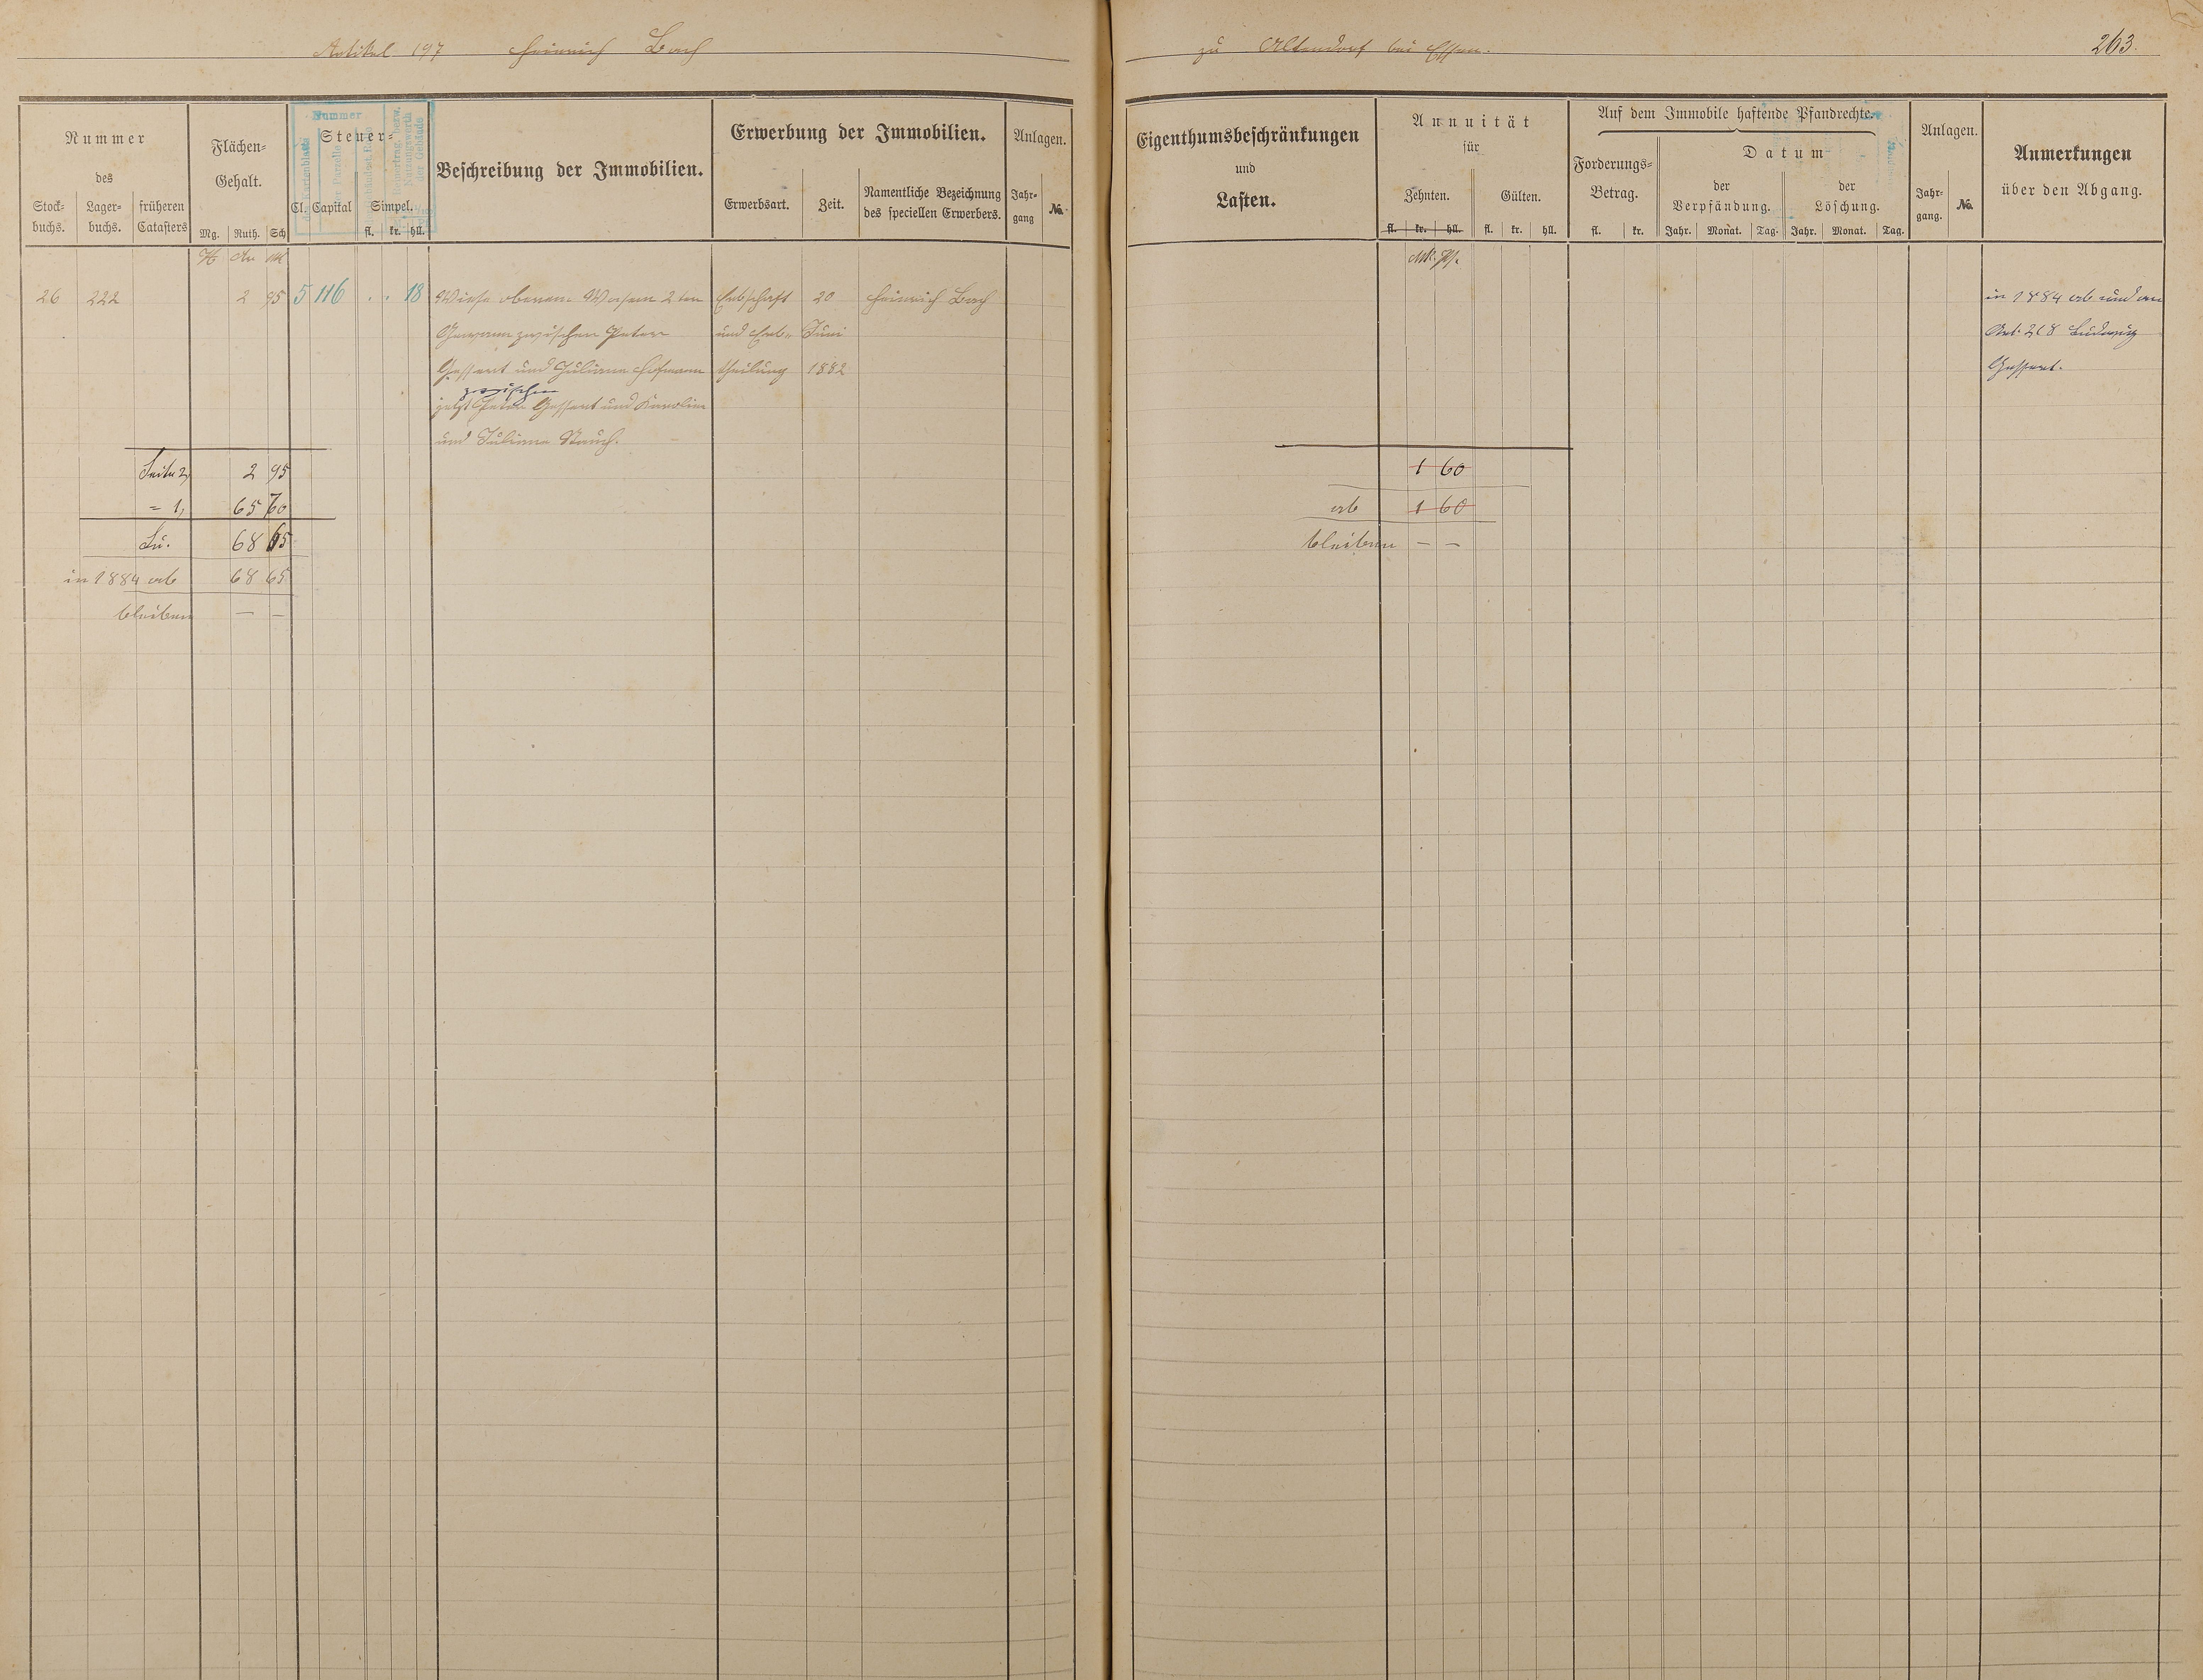 Artikel 197 Heinrich Bach
zu Altendorf bei Essen.
263.
Nummer
des
Stock-
buchs.
Lager-
buchs.
früheren
Catasters
Flächen-
Gehalt.
Mg. Ruth. Sch
Nummer
Steuer-
Cl. Capital Simpel.
fl. kr. hll.
Beschreibung der Immobilien.
Erwerbung der Immobilien.
Erwerbsart. Zeit.
Namentliche Bezeichnung
des speciellen Erwerbers.
Anlagen.
Jahr-
gang
No.
Eigenthumsbeschränkungen
und
Lasten.
Annuität
für
Zehnten. Gülten.
fl. kr. hll. fl. kr. hll.
Auf dem Immobile haftende Pfandrechte.
Forderungs-
Betrag.
fl. kr.
Datum
der
Verpfändung.
der
Löschung.
Jahr. Monat. Tag. Jahr. Monat. Tag.
Anlagen.
Jahr-
gang.
No.
Anmerkungen
über den Abgang.
Mk. Pf.
26 222 2 95 5 116 . . 18 Wiese obenan Wasem 2ten Erbschaft 20 Heinrich Bach
Gewann zwischen Peter und Erb- Juni
Gessert und Juliane Hofmann theilung 1882
zwischen
jetzt Peter Gessert und Karoline
und Juliane Rauch.
in 1884 ab und an
Art. 268 Ludwig
Gessert.
Seite 2, 2 95
= 1, 65 70
Su. 68 65
in 1884 ab 68 65
bleiben — —
1 60
ab 1 60
bleiben — —